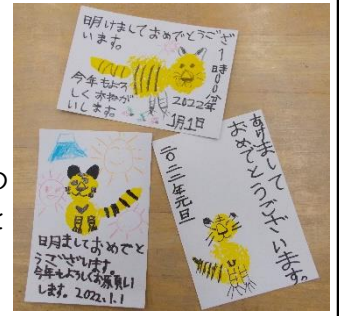 明けましておめでとうござ
います。
今年もよろ
しくおねが
いします。
2022年
1月1日
明ましておめでと
うございます。
今年もよろしくお願い
します。2022.1.1
あけまして
おめでとうございます。
二〇二二年元旦
の
と